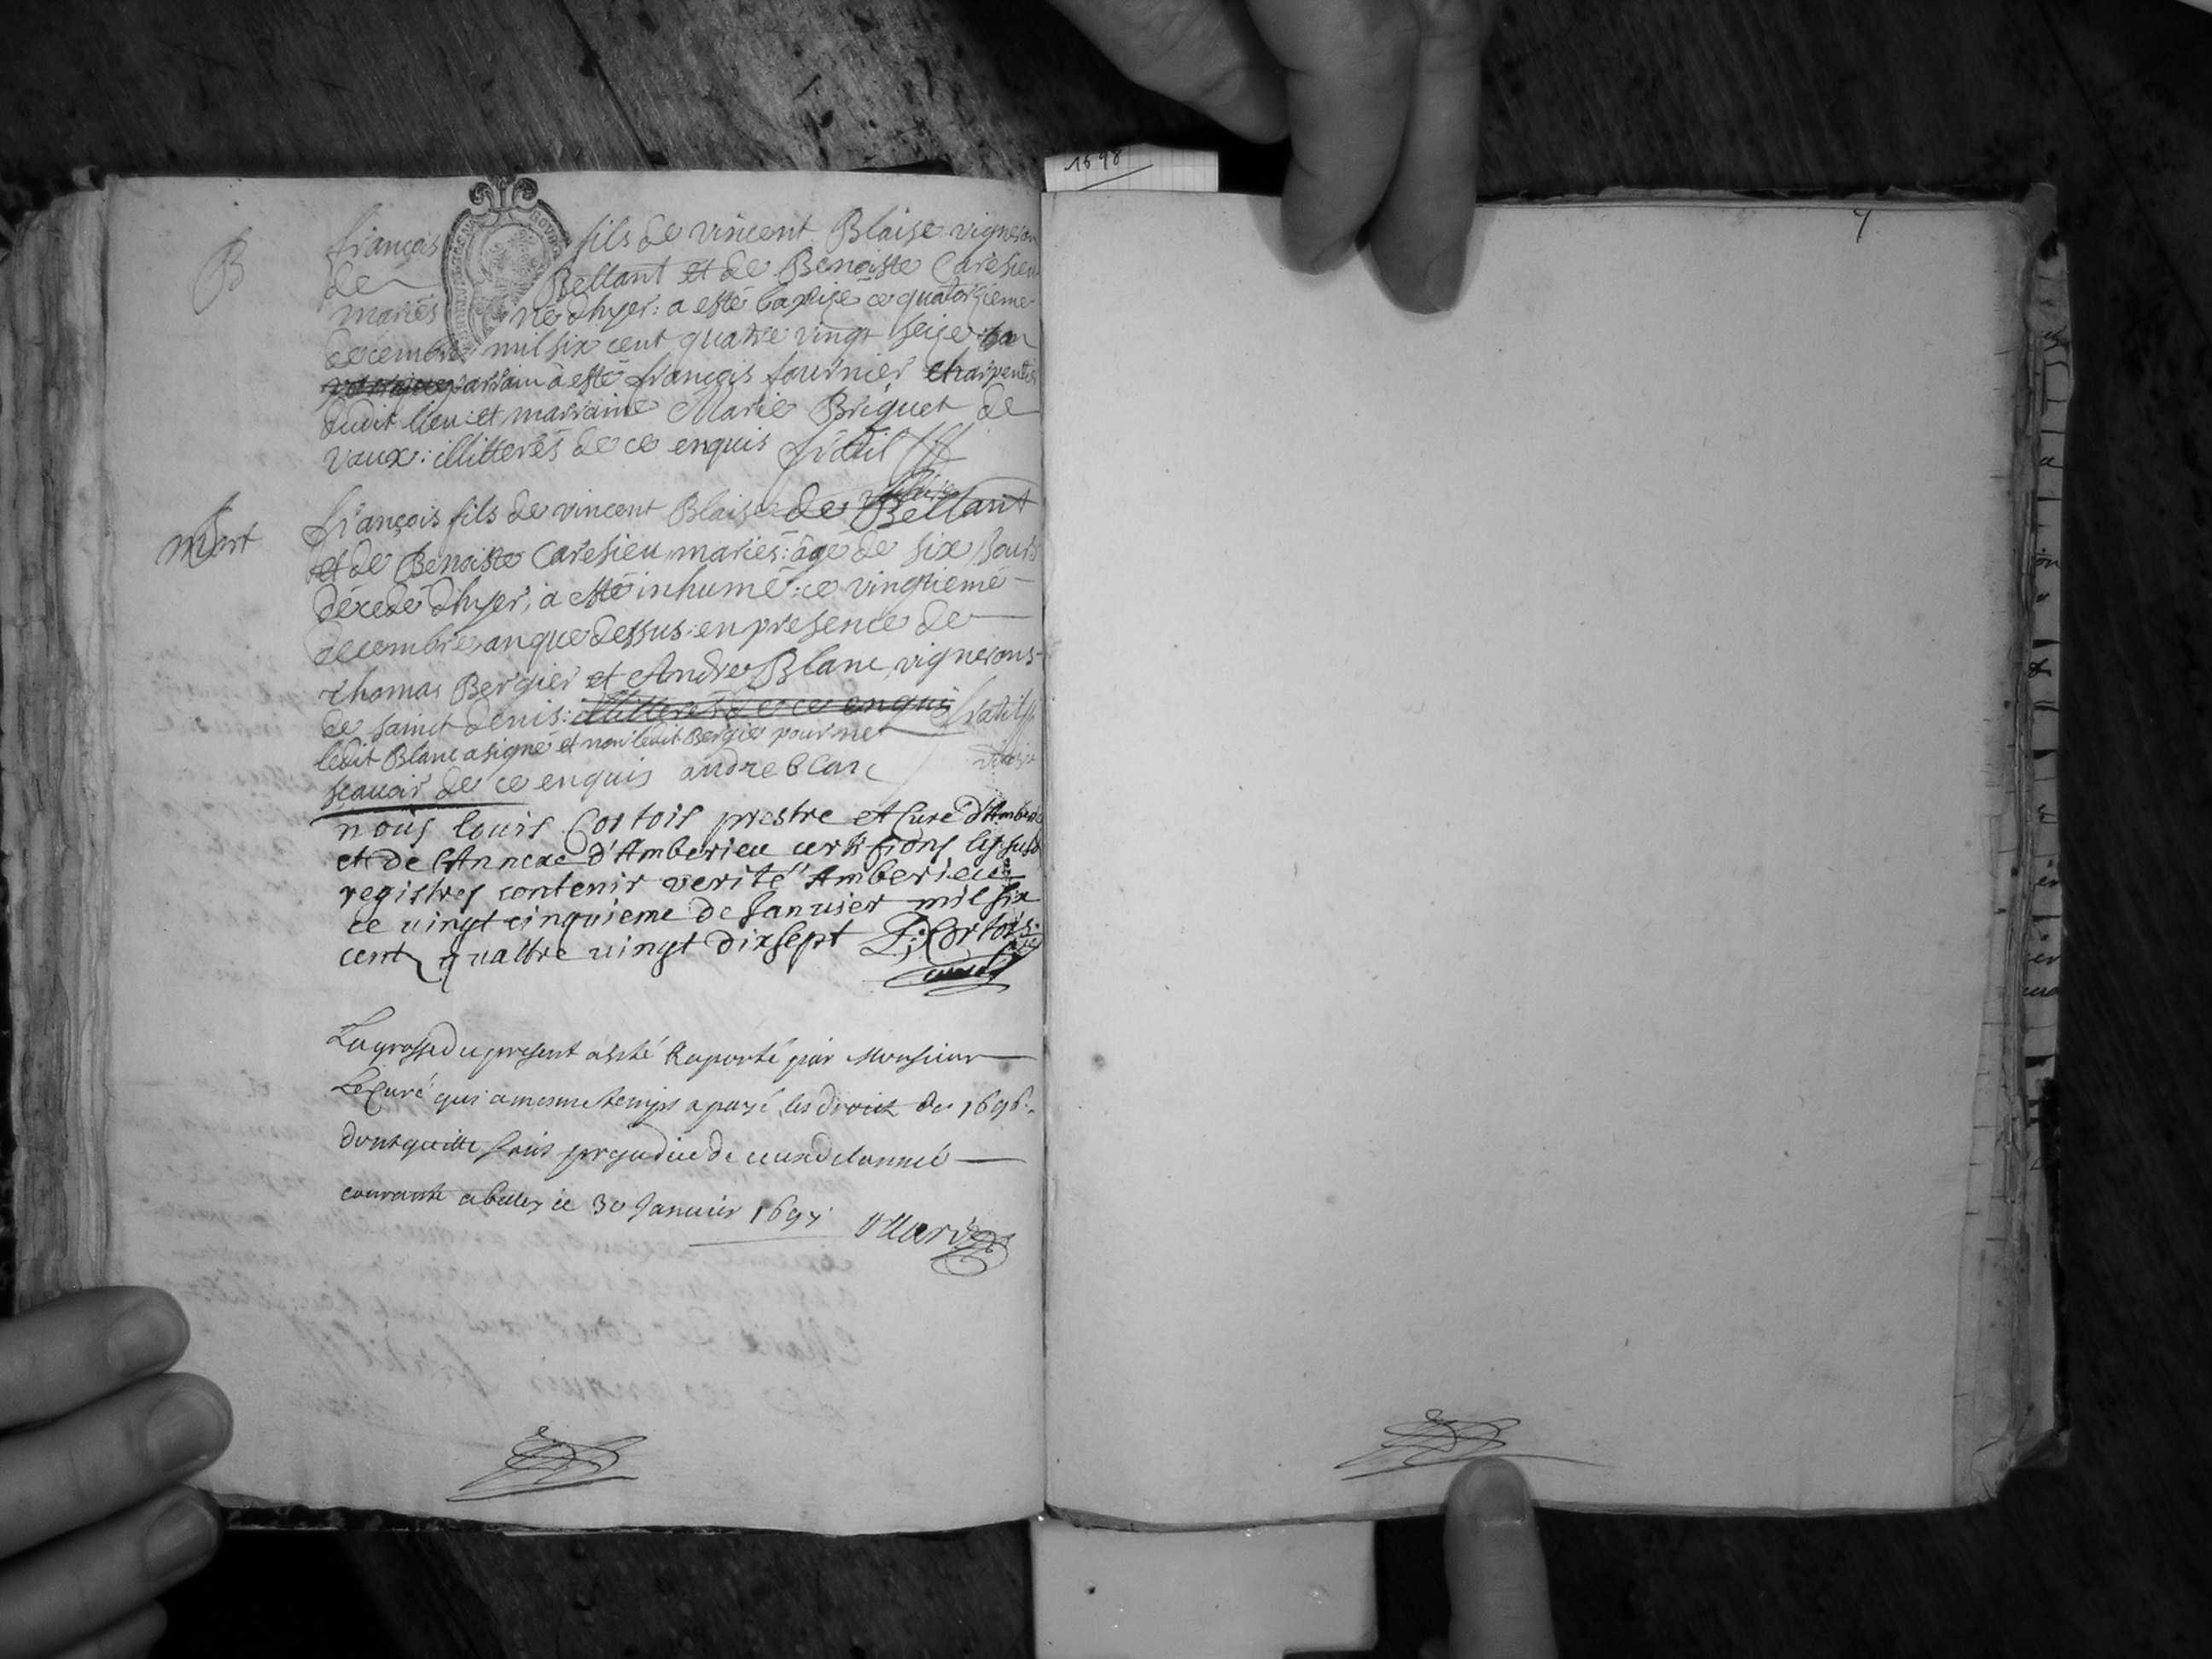 1698
7
B
françois fils de vincent Blaise vigneron
de Bellant et de Benoiste Caresieu
mariés né dhyer: a esté baptisé ce quatorzieme
decembre mil six cent quatre vingt seize
parrain à esté françois fournier charpentier
dudit lieu: et marraine Marie Briquet de
vaux: illitterés de ce enquis
mort
françois fils de vincent Blaise de Bellant
et de Benoiste Caresieu mariés: âgé de six jours
décedé dhyer, à esté inhumé: ce vingtiemé
decembre, an que dessus: en presence de
thomas Bergier et Andre Blanc, vignerons
de sainct denis: illitterés de ce enquis
ledit Blanc a signé et non ledit Bergier pour ne
sçauoir de ce enquis andre blanc
nous louis Cortois prestre et Curé d'Amberieu
et de l'Annexe d'Amberieu certifions les susd
registres contenir verité Amberieu
ce vingt cinquieme de Januier mil six
cent quattre vingt dix sept L: Cortois
curé
La grosse du present a esté Raporté par Monsieur
Le Curé qui a mesme temps a payé les droict de 1696
dont quitte sans prejudice de ceux de lannée
courante a belley ce 30 Januier 1697